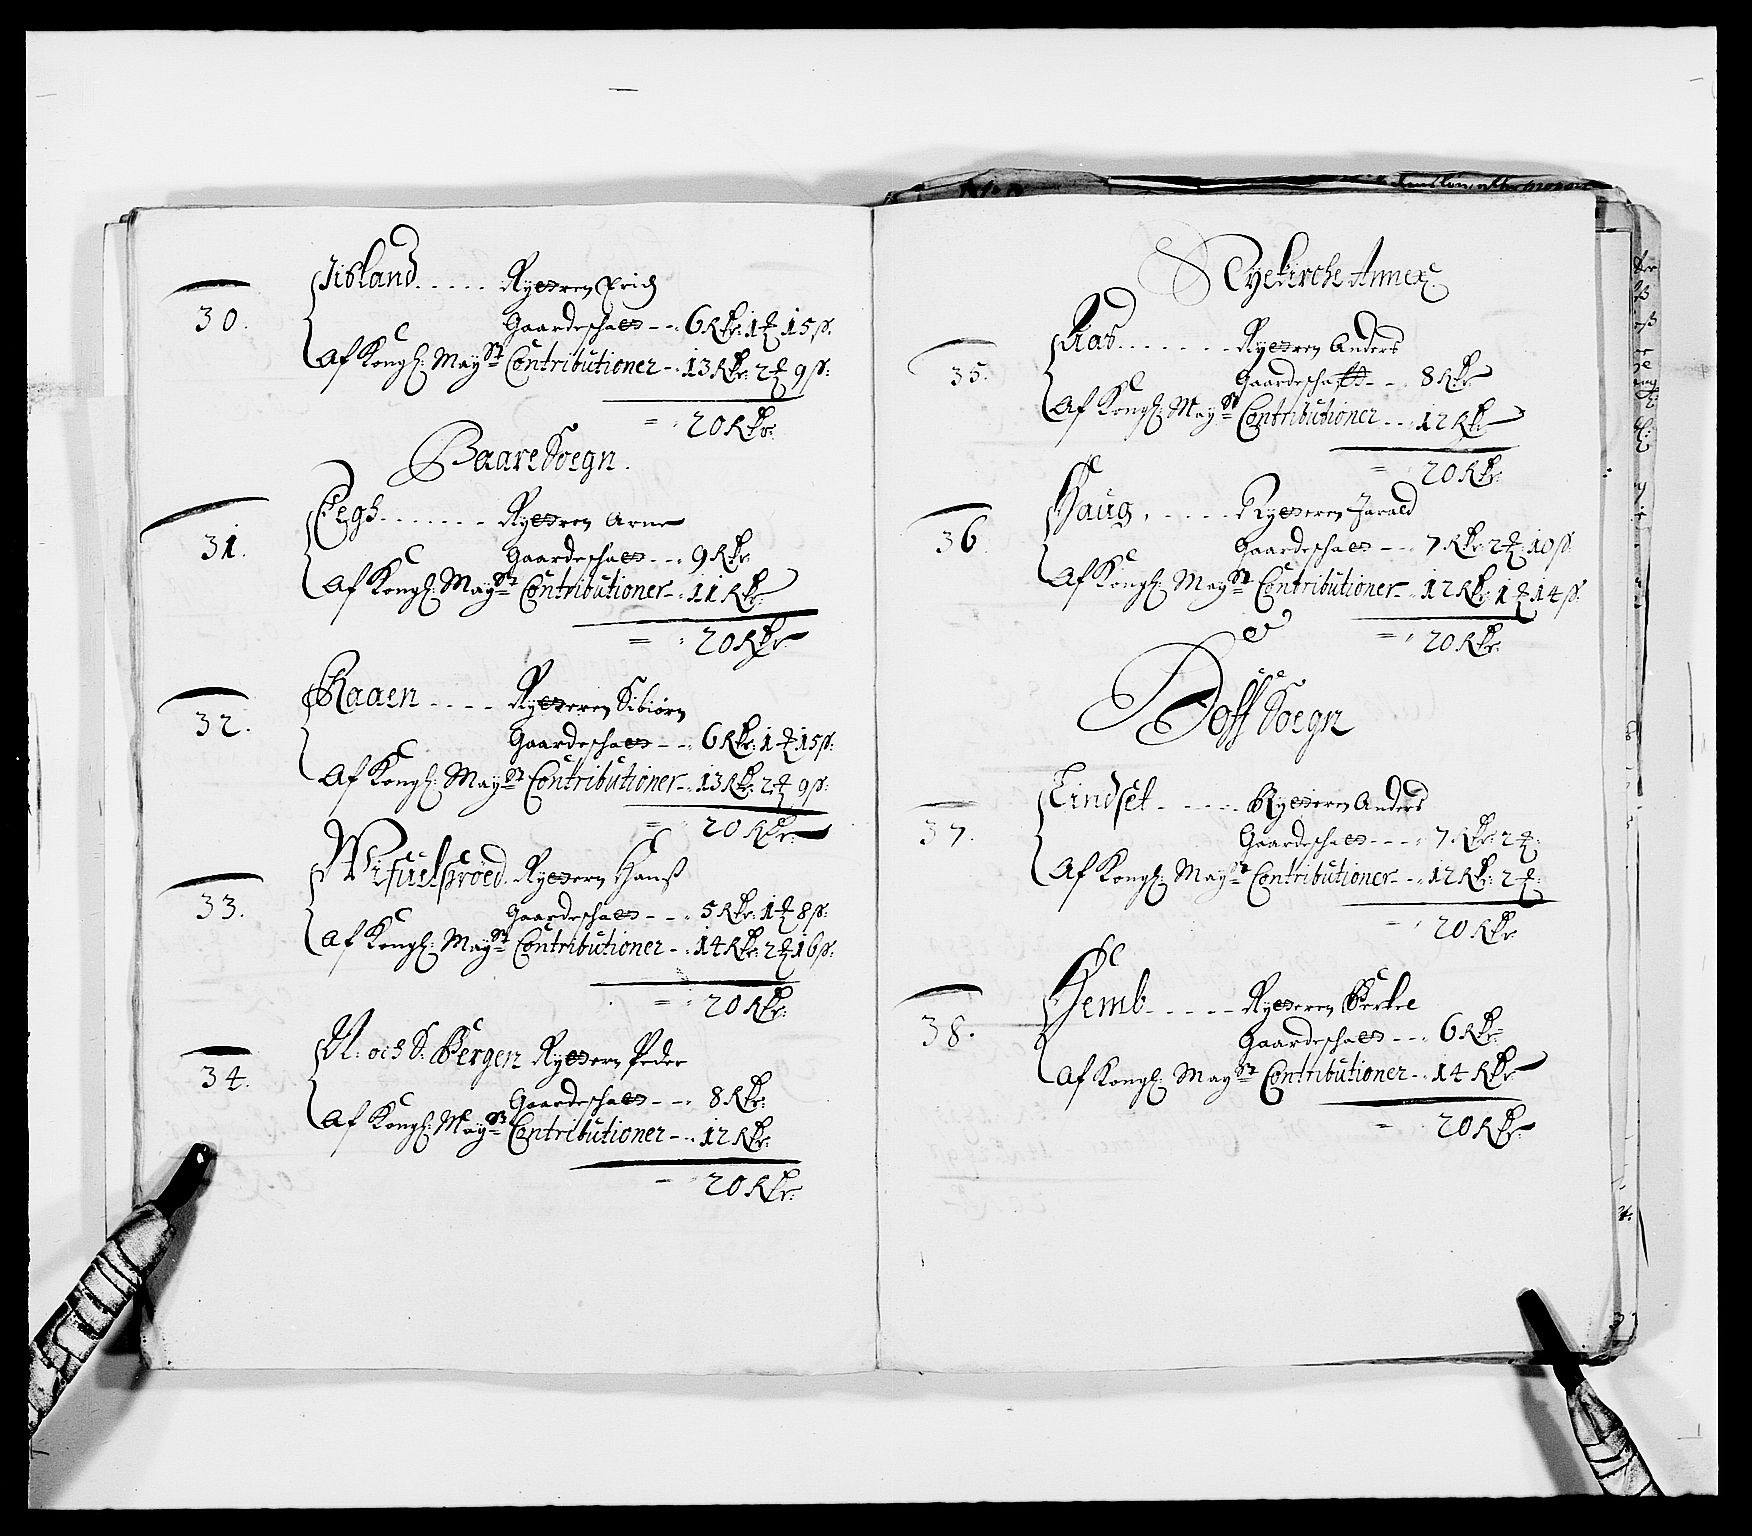 30. Jibland . . . . . Rytteren Erich
Gaardeschatt - - 6 Rdr: 1 ℔ 15 ß.
Af Kongl: Mayst Contributioner - 13 Rdr: 2 ℔ 9 ß:
= 20 Rdr:
Baare Soegn.
31. Tegs . . . . . . . Rytteren Arne
Gaardeschatt - - 9 Rdr
Af Kongl: Mayst Contributioner - 11 Rdr:
= 20 Rdr:
32. Raaen - - - - Rytteren Sibiørn
Gaardeschatt - - 6 Rdr: 1 ℔ 15 ß:
Af Kongl: Mayst Contributioner - 13 Rdr: 2 ℔ 9 ß:
= 20 Rdr:
33. Rytteren Hanß
Gaardeschatt - - 5 Rdr: 1 ℔ 8 ß:
Af Kongl: Mayst Contributioner - 14 Rdr: 2 ℔ 16 ß:
= 20 Rdr:
34. N: och S: Bergen Rytteren Peder
Gaardeschatt - - 8 Rdr:
Af Kongl: Mayst Contributioner - 12 Rdr:
= 20 Rdr:
Tyekirche Annex:
35. Rytteren Anders
Gaardeschatt - - 8 Rdr
Af Kongl: Mayst Contributioner - - 12 Rdr
= 20 Rdr:
36. Haug . - - - - Rytteren Jarald
Gaardeschatt - - 7 Rdr: 2 ℔: 10 ß:
Af Kongl: Mayst Contributioner - 12 Rdr: 1 ℔ 14 ß:
= 20 Rdr:
Hoff Soegn
37. Lindset - - - - Rytteren Anders
Gaardeschatt - - - 7 Rdr: 2 ℔:
Af Kongl: Mayst Contributioner - - 12 Rdr: 2 ℔:
= 20 Rdr
38. Hemb - - - - - Rytteren Berke
Gaardeschatt - - 6 Rdr:
Af Kongl: Mayst Contributioner - 14 Rdr
= 20 Rdr: